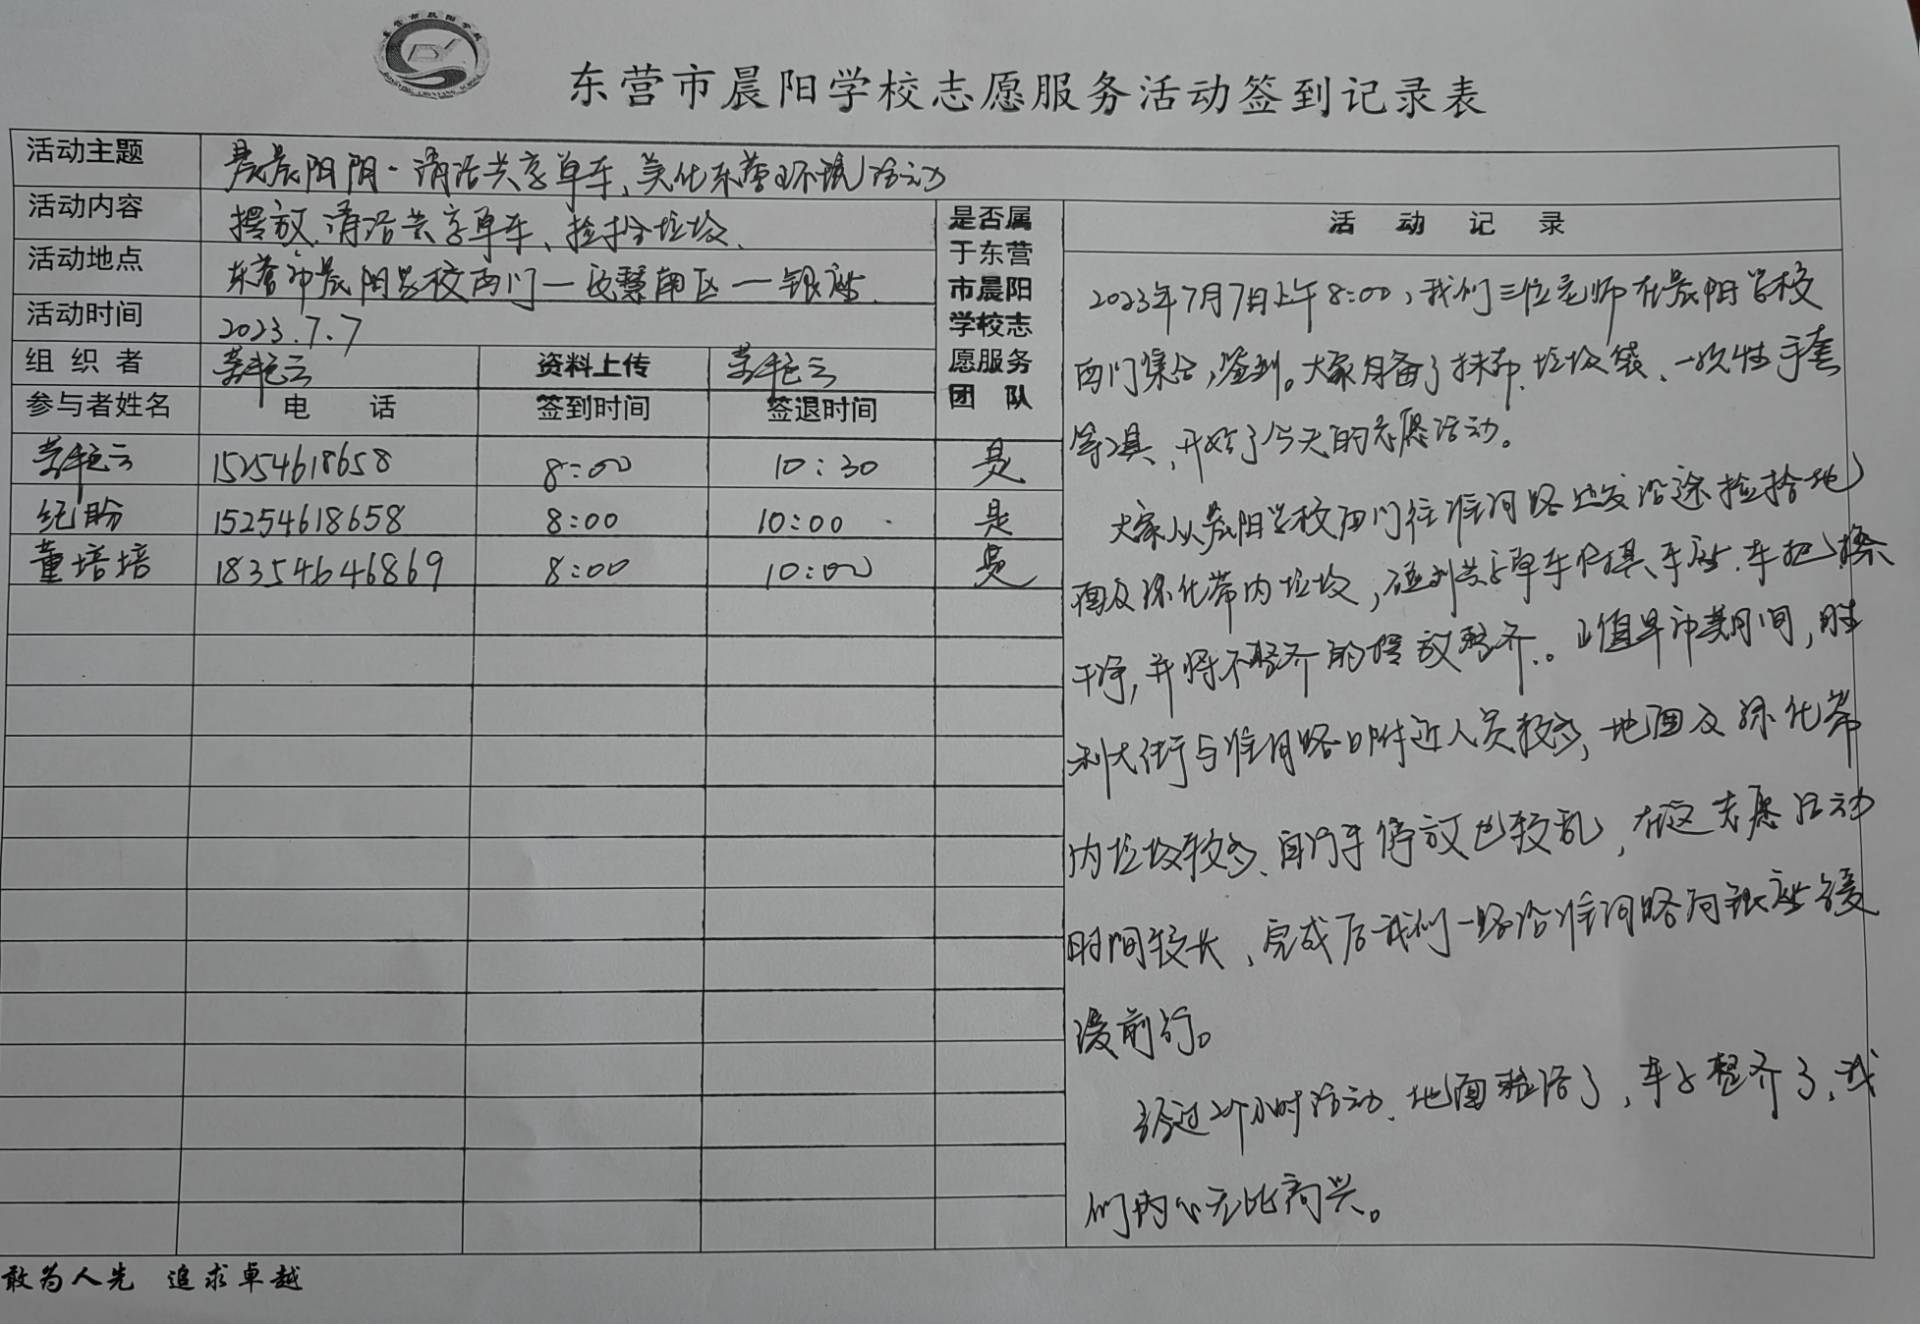 东营市晨阳学校志愿服务活动签到记录表
活动主题 晨晨阳阳·清洁共享单车、美化东营环境活动
活动内容 摆放、清洁共享单车、捡拾垃圾、
活动地点 东营市晨阳学校西门—安慧南区—银座
活动时间 2023.7.7
组织者 资料上传
是否属于东营市晨阳学校志愿服务团队
活动记录
参与者姓名 电话 签到时间 签退时间
15254618658 8:00 10:30 是
纪盼 15254618658 8:00 10:00 是
董培培 18354646869 8:00 10:00 是
2023年7月7日上午8:00,我们三位老师在晨阳学校
西门集合,签到。大家自备了抹布、垃圾袋、一次性手套
等工具,开始了今天的志愿活动。
大家从晨阳学校西门往淮河路出发沿途捡拾地
面及绿化带内垃圾,碰到共享单车将其车座、车把擦
干净,并将不整齐的摆放整齐。正值早市期间,胜
利大街与淮河路口附近人员较多,地面及绿化带
内垃圾较多、自行车停放也较乱,在这志愿活动
时间较长,完成后我们一路沿淮河路向银座缓
缓前行。
经过2个小时活动、地面整洁了,车子整齐了,我
们内心无比高兴。
敢为人先 追求卓越